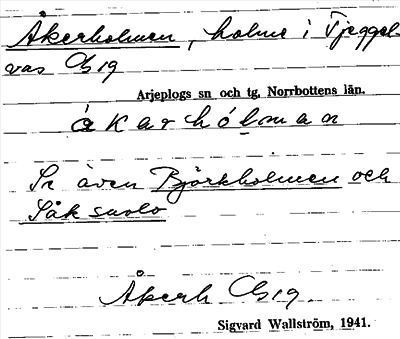 Åkerholmen, holme i Tjeggel-
vas Cb 19
Arjeplogs sn och tg. Norrbottens län.
å k a r h ó l m a n
Se även Björkholmen och
Såk suolo
Åkerh Cb 19.
Sigvard Wallström, 1941.